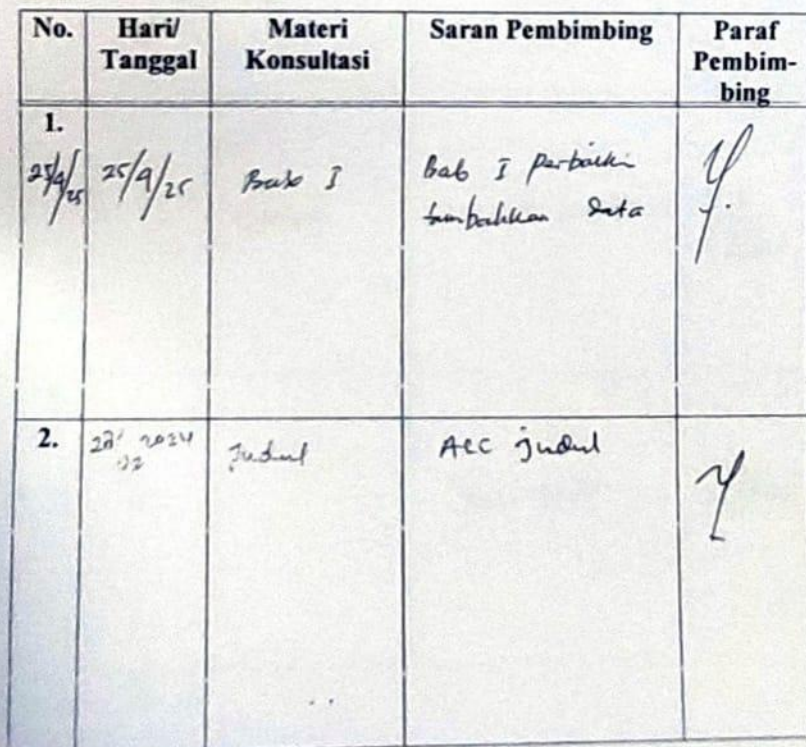 No. Hari/ Tanggal Materi Konsultasi Saran Pembimbing Paraf Pembim-bing
1.
25/9/25 25/9/25 Bab I Bab I perbaiki
tambahkan data
2. 2024 Judul ACC judul
02